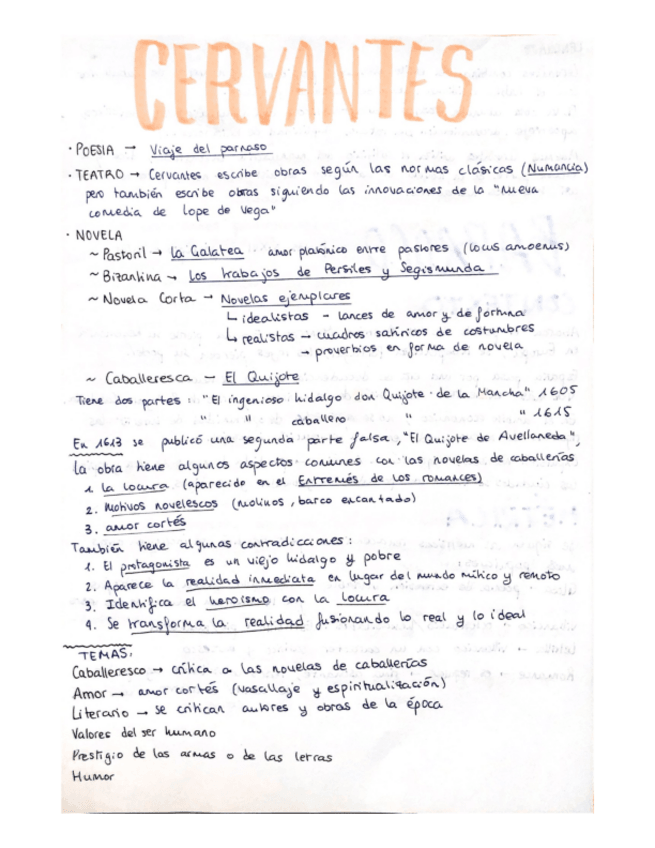 CERVANTES
· POESIA → Viaje del parnaso
· TEATRO → Cervantes escribe obras según las normas clásicas (Numancia)
pero también escribe obras siguiendo las innovaciones de la "nueva
comedia de Lope de Vega"
· NOVELA
~ Pastoril → la Galatea amor platónico entre pastores (locus amoenus)
~ Bizantina → Los trabajos de Persiles y Segismunda.
~ Novela Corta → Novelas ejemplares
↳ idealistas - lances de amor y de fortuna
↳ realistas → cuadros satíricos de costumbres
→ proverbios en forma de novela
~ Caballeresca - El Quijote
Tiene dos partes: "El ingenioso hidalgo don Quijote de la Mancha" 1605
" " caballero " " 1615
En 1613 se publicó una segunda parte falsa, "El Quijote de Avellaneda",
La obra tiene algunos aspectos comunes con las novelas de caballerías
1. la locura (aparecido en el Entremés de los romances)
2. Motivos novelescos (molinos, barco encantado)
3. amor cortés
También tiene algunas contradicciones:
1. El protagonista es un viejo hidalgo y pobre
2. Aparece la realidad inmediata en lugar del mundo mítico y remoto
3. Identifica el heroísmo con la locura
4. Se transforma la realidad fusionando lo real y lo ideal
TEMAS:
Caballeresco → crítica a las novelas de caballerías
Amor → amor cortés (vasallaje y espiritualización)
Literario → se critican autores y obras de la época
Valores del ser humano
Prestigio de las armas o de las letras
Humor